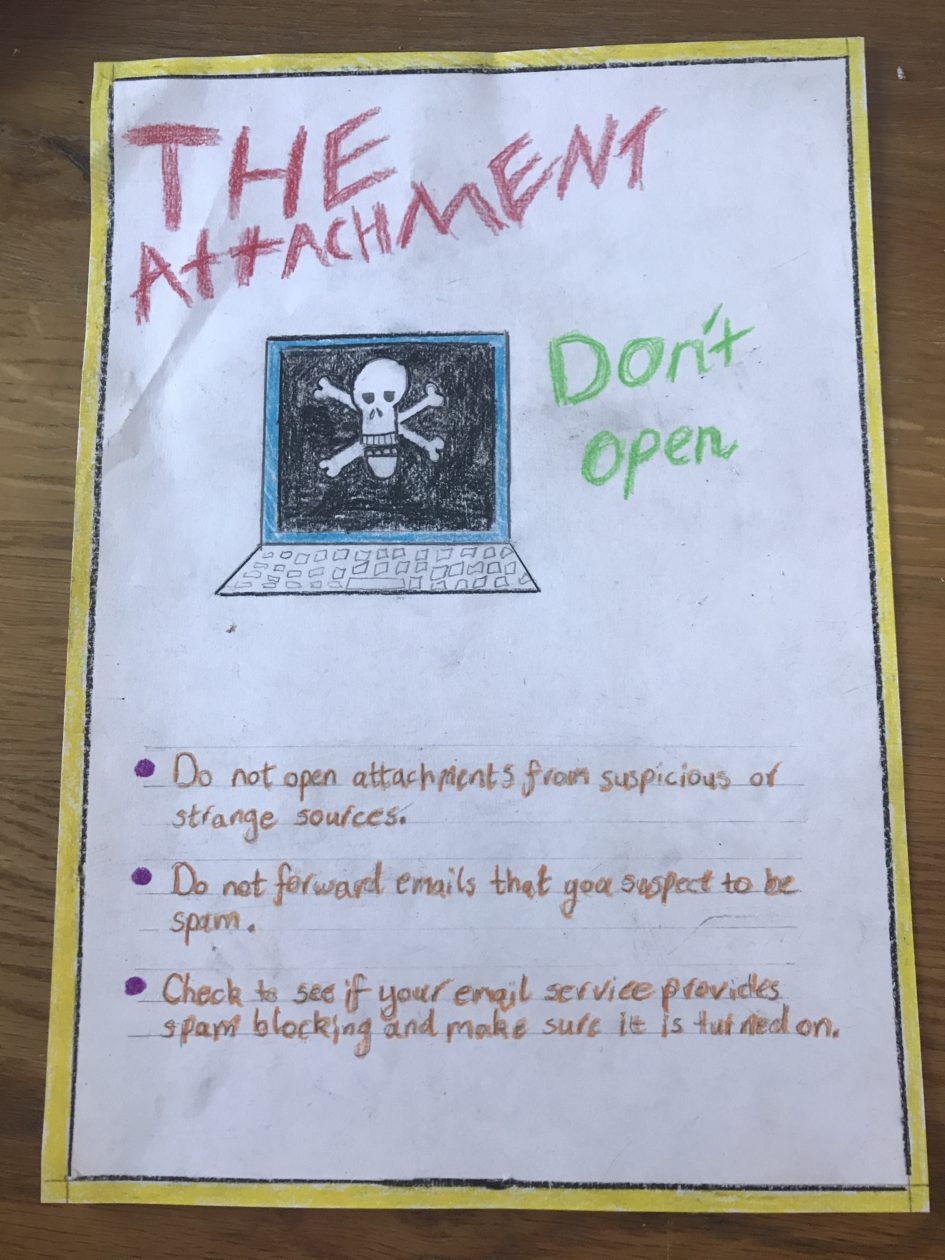 THE
ATTACHMENT
Don't
open
Do not open attachments from suspicious or
strange sources.
Do not forward emails that you suspect to be
spam.
Check to see if your email service provides
spam blocking and make sure it is turned on.